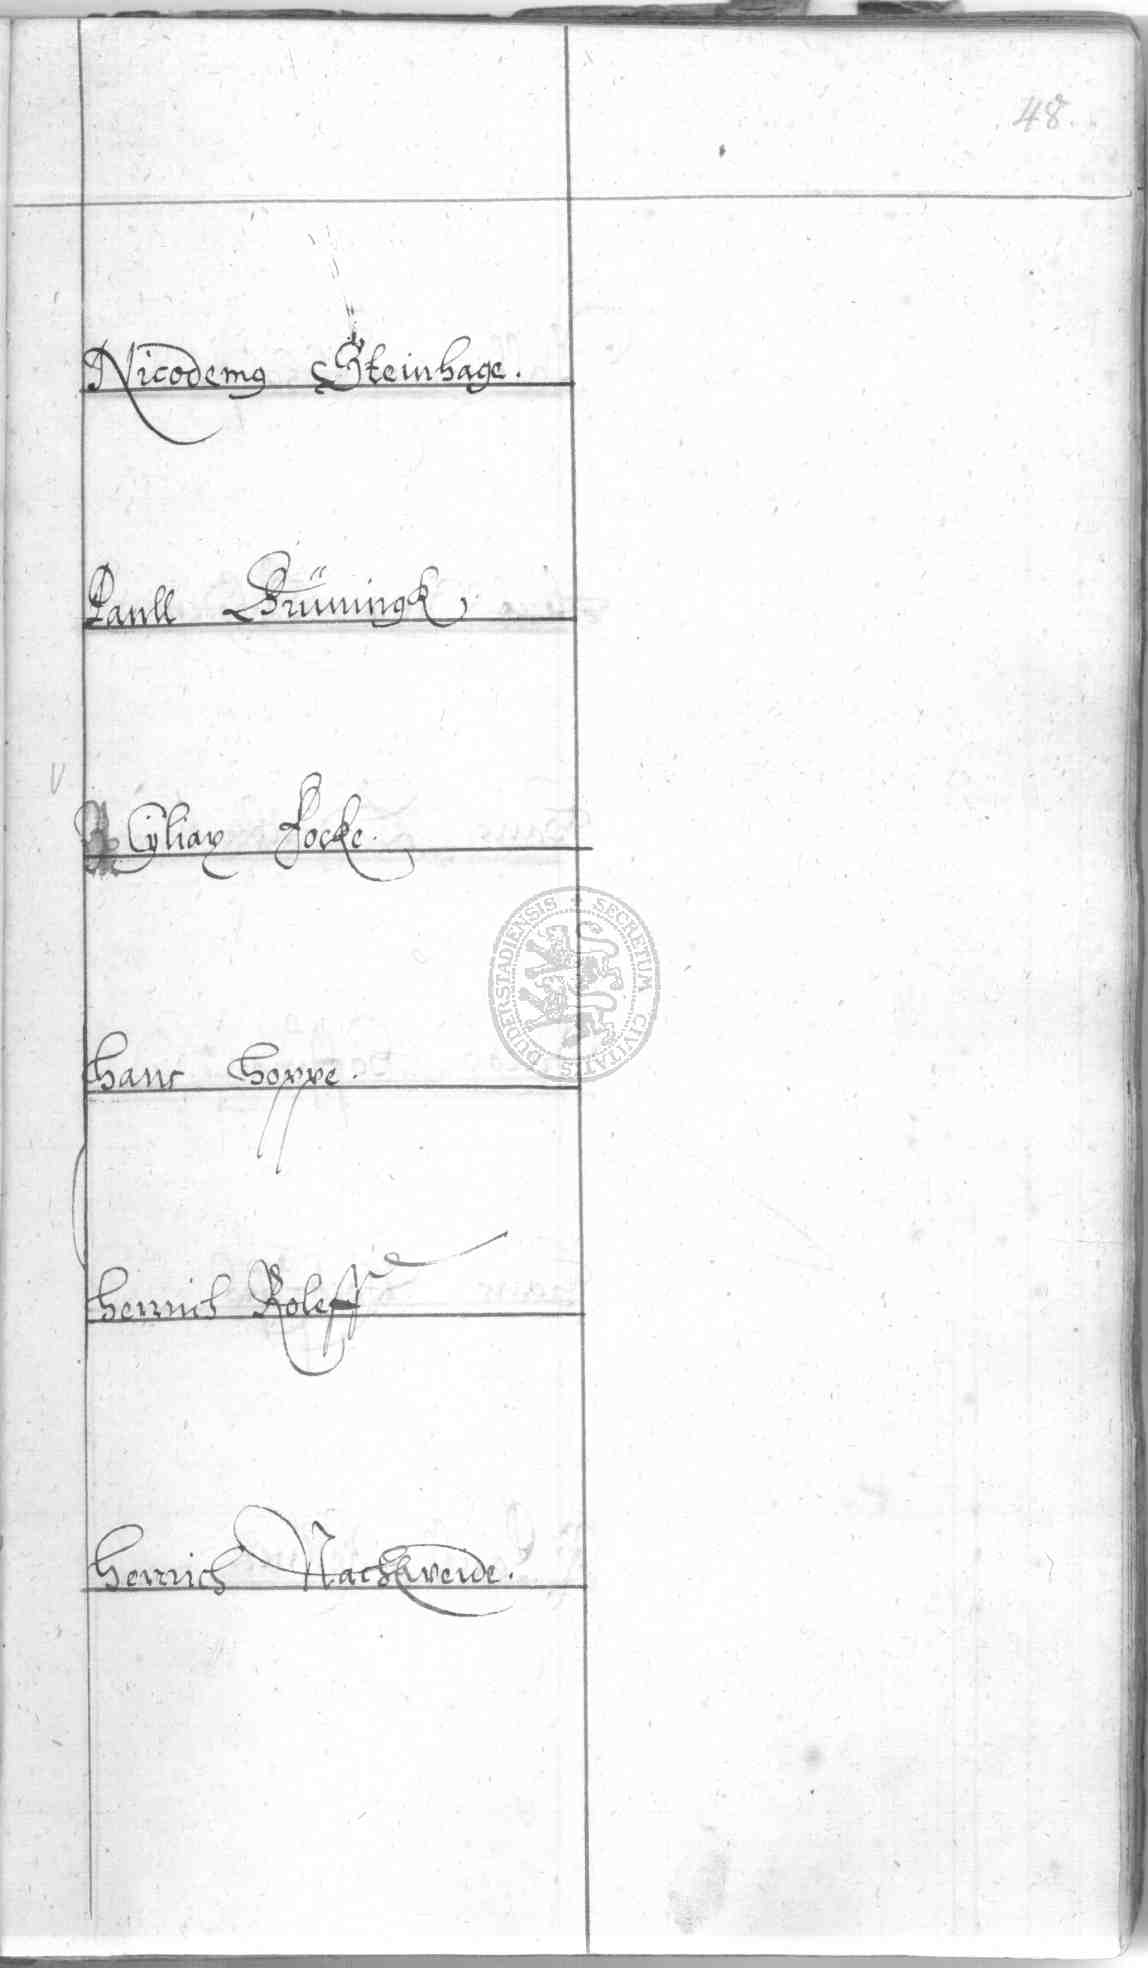 48.
Nicodemg Steinhage.
Paull Brüningk
Cyliax Focke.
Hans Hoppe.
Henrich Roleff
Henrich Nachtweide.
SECRETUM CIVITATIS DUDERSTADIENSIS